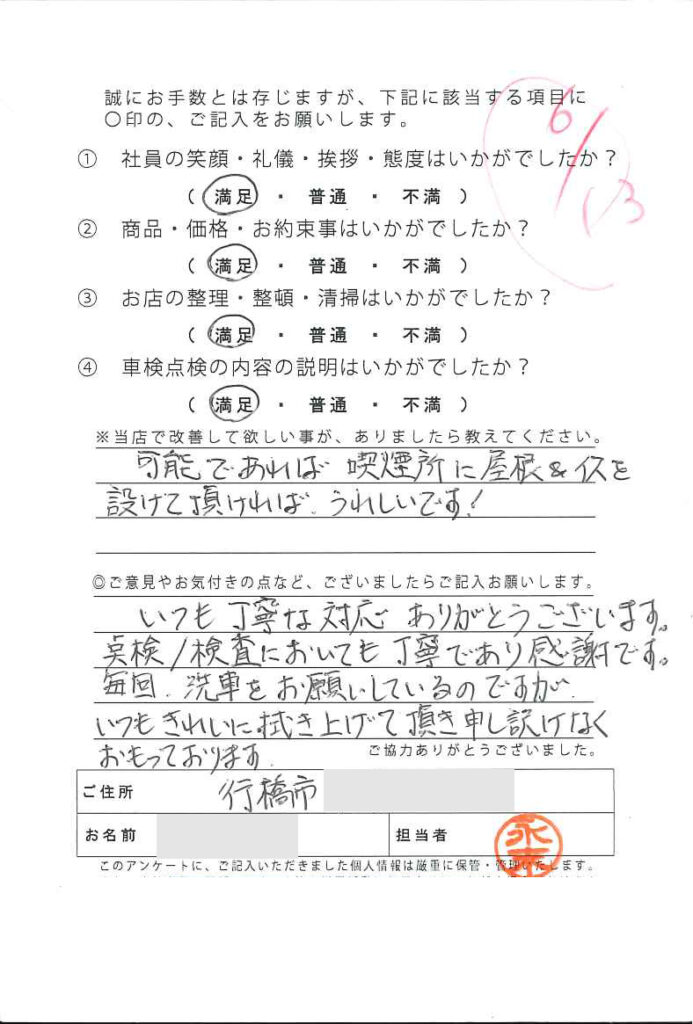 誠にお手数とは存じますが、下記に該当する項目に
〇印の、ご記入をお願いします。
6/13
① 社員の笑顔・礼儀・挨拶・態度はいかがでしたか？
( 満足 ・ 普通 ・ 不満 )
② 商品・価格・お約束事はいかがでしたか？
( 満足 ・ 普通 ・ 不満 )
③ お店の整理・整頓・清掃はいかがでしたか？
( 満足 ・ 普通 ・ 不満 )
④ 車検点検の内容の説明はいかがでしたか？
( 満足 ・ 普通 ・ 不満 )
※当店で改善して欲しい事が、ありましたら教えてください。
可能であれば 喫煙所に屋根&イスを
設けて頂ければ、うれしいです!
◎ご意見やお気付きの点など、ございましたらご記入お願いします。
いつも丁寧な対応 ありがとうございます。
点検/検査においても丁寧であり感謝です。
毎回、洗車をお願いしているのですが、
いつもきれいに拭き上げて頂き申し訳けなく
おもっております。
ご協力ありがとうございました。
ご住所 行橋市
お名前 担当者 永
このアンケートに、ご記入いただきました個人情報は厳重に保管・管理いたします。